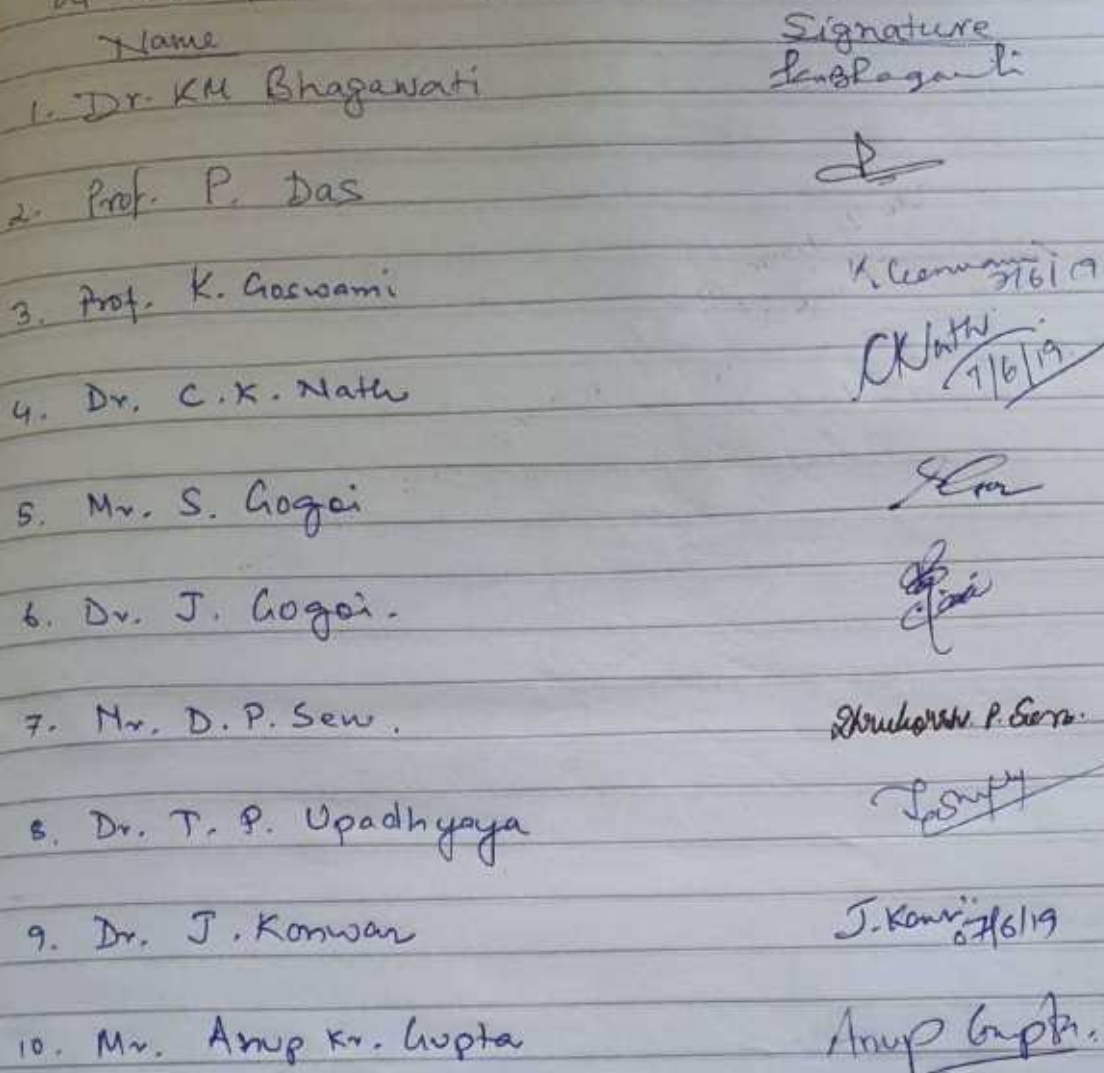 Name Signature
1. Dr. KM Bhagawati
2. Prof. P. Das
3. Prof. K. Goswami 7/6/19
4. Dr. C.K. Nath CKNath 7/6/19
5. Mr. S. Gogoi
6. Dr. J. Gogoi.
7. Mr. D.P. Sen. P. Sen.
8. Dr. T. P. Upadhyaya
9. Dr. J. Konwar J. Konwar 07/6/19
10. Mr. Anup Kr. Gupta Anup Gupta.